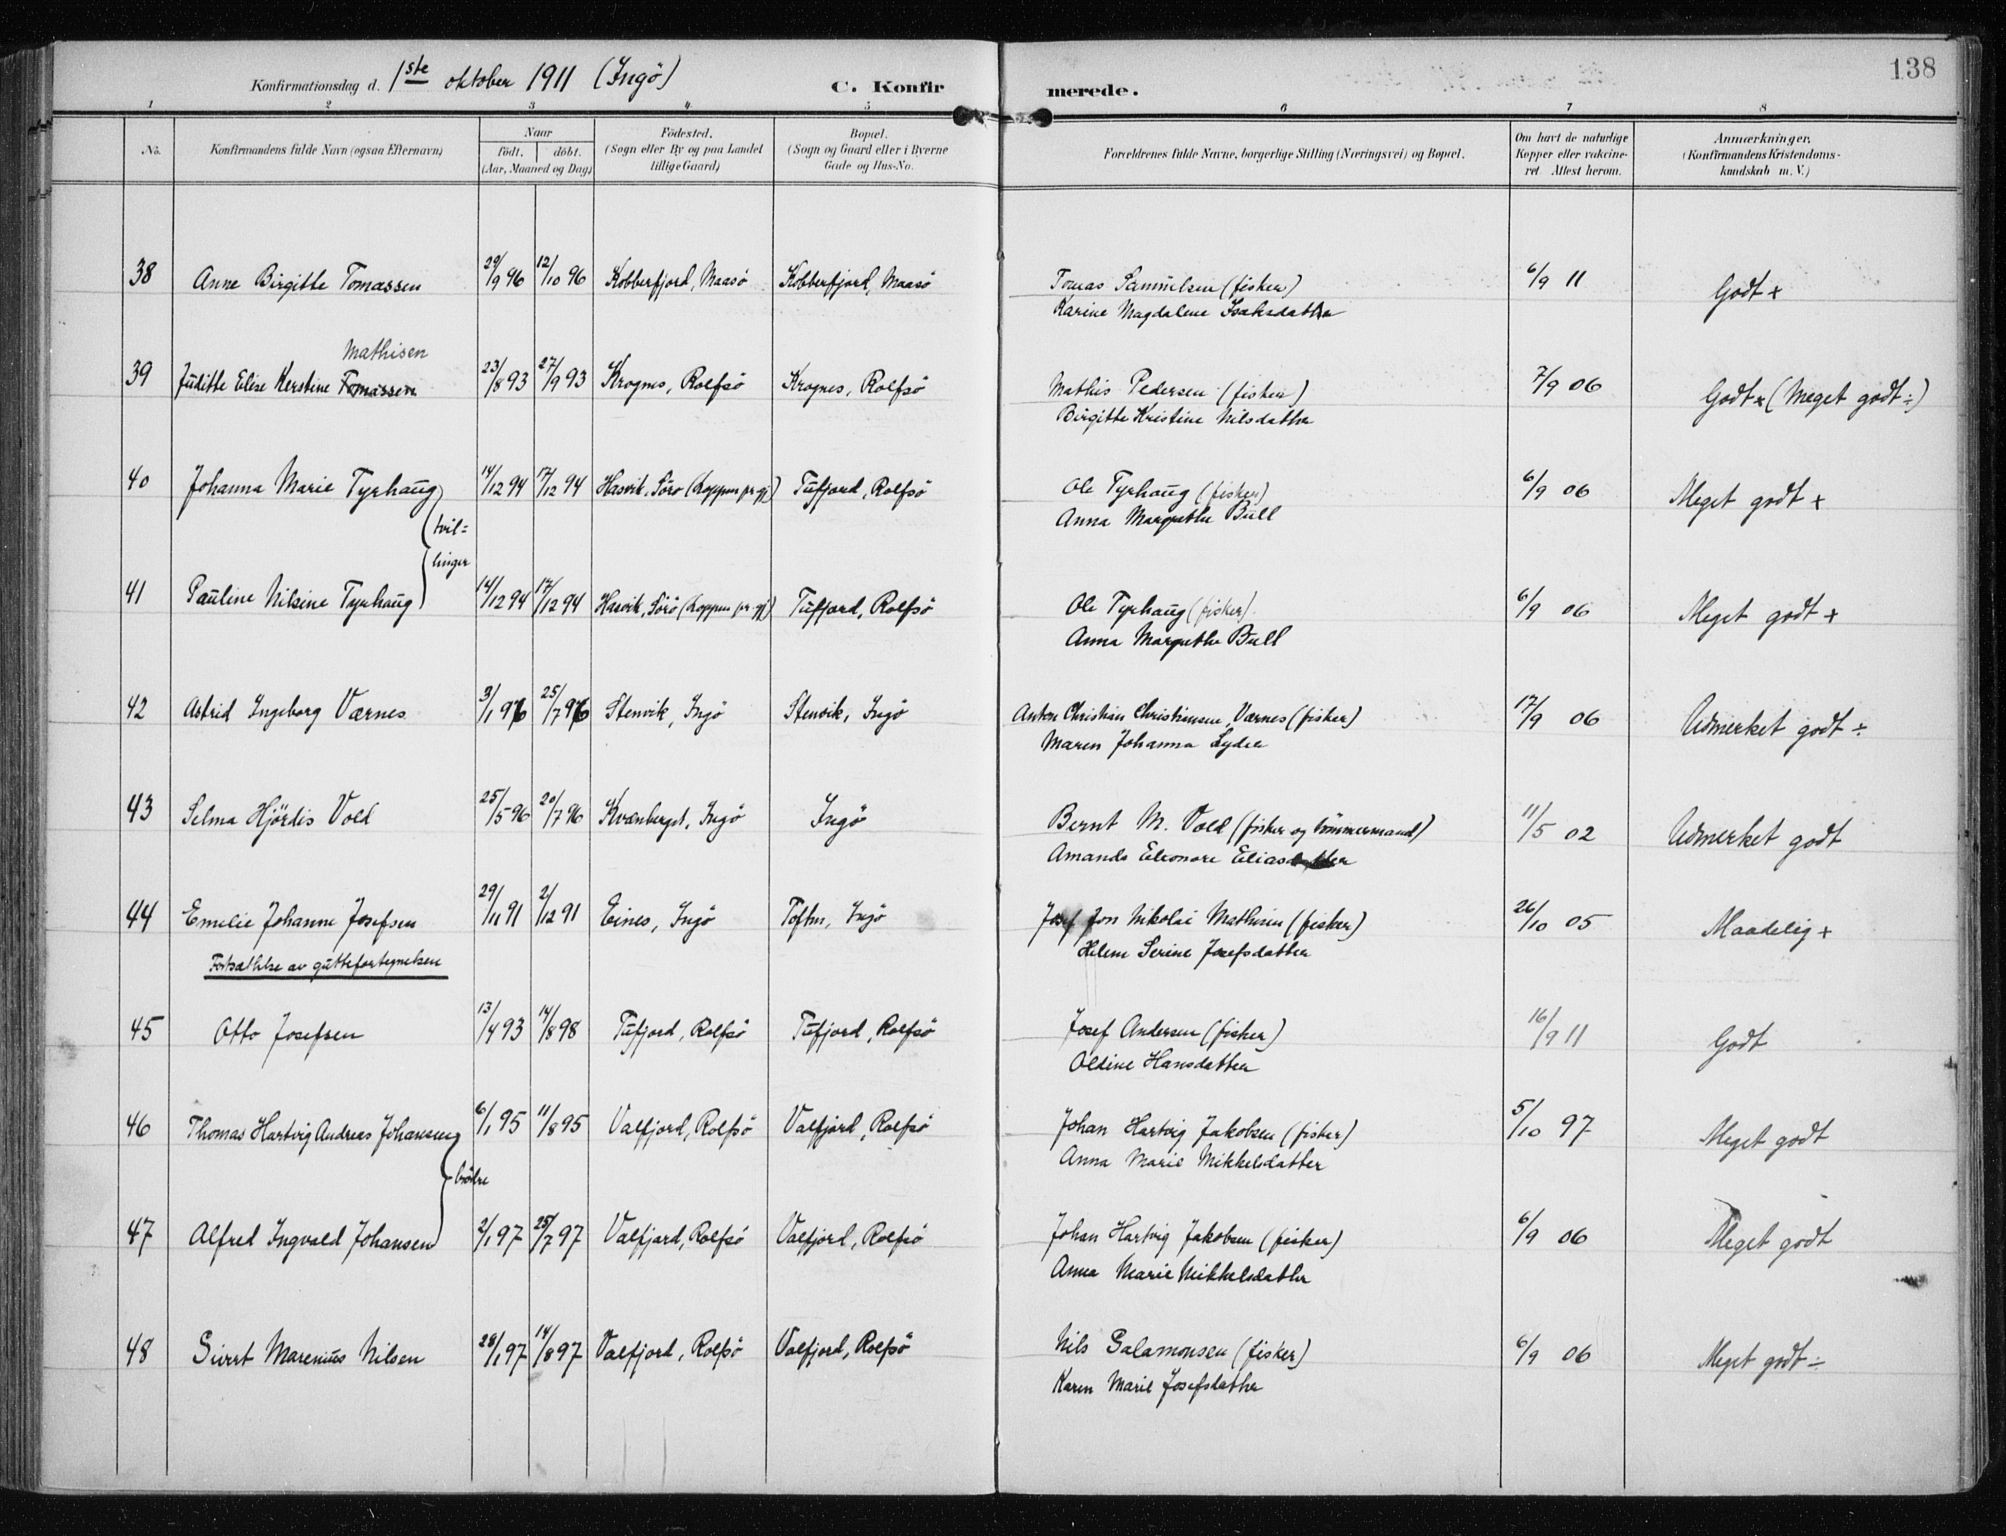 138
Konfirmationsdag d. 1ste oktober 1911 (Ingö) C. Konfirmerede.
1 2 3 4 5 6 7 8
No. Konfirmandens fulde Navn (ogsaa Efternavn). Naar født. døbt. (Aar, Maaned og Dag) Födested. (Sogn eller By og paa Landet tillige Gaard) Bopæl. (Sogn og Gaard eller i Byerne Gade og Hus-No. Forældrenes fulde Navne, borgerlige Stilling (Næringsvei) og Bopæl. Om havt de naturlige Kopper eller vakcineret. Attest herom. Anmærkninger. (Konfirmandens Kristendomskundskab m. V.)
38 Anne Birgitte Tomassen 29/9 96 12/10 96 Kobberfjord, Maasö Kobberfjord, Maasö Tomas Samuelsen (fisker) 6/9 11 Godt +
Karine Magdalene Isaksdatter
Mathisen
39 Juditte Elise Kerstine Tomassen 23/8 93 27/9 93 Krognes, Rolfsö Krognes, Rolfsö Mathis Pedersen (fisker) 7/9 06 Godt + (Meget godt ÷)
Birgitte Kristine Nilsdatter
40 Johanna Marie Tyrhaug 14/12 94 17/12 94 Hasvik, Sörö (Loppen pr.gj) Tufjord, Rolfsö Ole Tyrhaug (fisker) 6/9 06 Meget godt +
Anna Margrethe Bull
tvil=
linger
41 Pauline Nilsine Tyrhaug 14/12 94 17/12 94 Hasvik, Sörö (Loppen pr.gj) Tufjord, Rolfsö Ole Tyrhaug (fisker) 6/9 06 Meget godt +
Anna Margrethe Bull
42 Astrid Ingeborg Værnes 3/1 96 25/7 96 Stenvik, Ingö Stenvik, Ingö Anton Christian Christiansen Værnes (fisker) 17/9 06 Udmerket godt ÷
Maren Johanna Lydia
43 Selma Hjördis Vold 25/5 96 20/7 96 Kvænberget, Ingö Ingö Bernt M. Vold (fisker og tömmermand) 11/5 02 Udmerket godt
Amanda Eleonore Eliasdatter
44 Emelie Johanne Josefsen 29/11 91 2/12 91 Eines, Ingö Toften, Ingö Josef Jon Nikolai Mathisen (fisker) 26/10 05 Maadelig +
Helene Serine Josefsdatter
Fortsættelse av guttefortegnelsen
45 Otto Josefsen 13/4 93 14/8 98 Tufjord, Rolfsö Tufjord, Rolfsö Josef Andersen (fisker) 16/9 11 Godt
Oldine Hansdatter
46 Thomas Hartvig Andreas Johansen 6/1 95 11/8 95 Valfjord, Rolfsö Valfjord, Rolfsö Johan Hartvig Jakobsen (fisker) 5/10 97 Meget godt
Anna Marie Mikkelsdatter
brödre
47 Alfred Ingvald Johansen 2/1 97 25/7 97 Valfjord, Rolfsö Valfjord, Rolfsö Johan Hartvig Jakobsen (fisker) 6/9 06 Meget godt
Anna Marie Mikkelsdatter
48 Sivert Marenius Nilsen 28/1 97 14/8 97 Valfjord, Rolfsö Valfjord, Rolfsö Nils Salamonsen (fisker) 6/9 06 Meget godt ÷
Karen Marie Josefsdatter